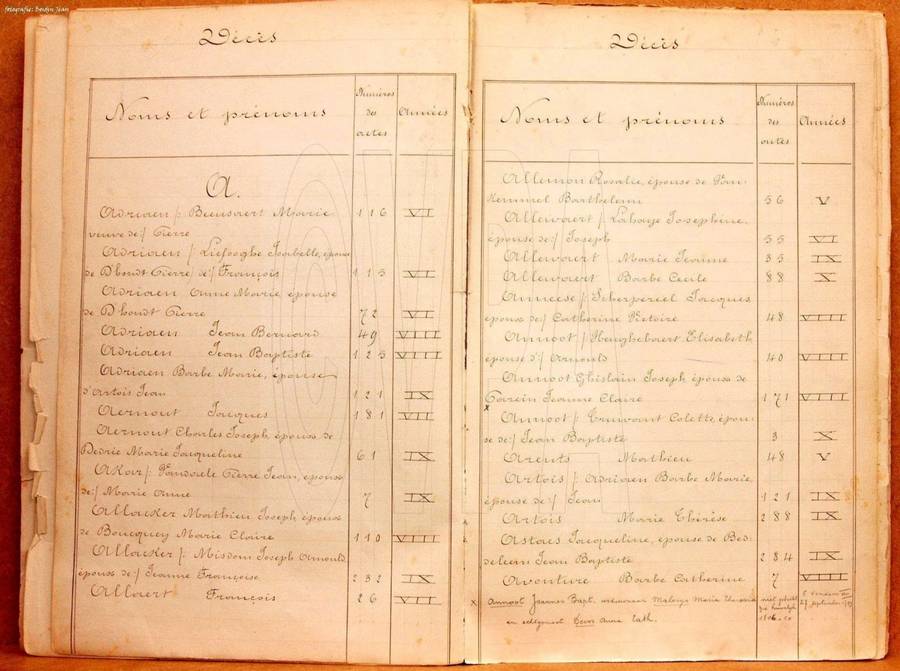 fotografie: Bourdyn Jean
Décès
Numéros
Noms et prénoms des Années
actes
A.
Adriaen /: Beeusaert Marie 116 VI
veuve de :/ Pierre
Adriaen / Liefooghe Isabelle, épouse
de D'hondt Pierre / de :/ François 115 VI
Adriaen Anne Marie épouse
de D'hondt Pierre 72 VI
Adriaen Jean Bernard 49 VIII
Adriaen Jean Baptiste 125 VIII
Adriaen Barbe Marie, épouse
d'Artois Jean 121 IX
Aernout Jacques 181 VII
Aernout Charles Joseph, époux de
Dedrie Marie Jacqueline 61 IX
Akar /: Vandaele Pierre Jean, époux
de :/ Marie Anne 7 IX
Allacker Mathieu Joseph époux
de Boucquey Marie Claire 110 VIII
Allacker /: Misdom Joseph Arnould
époux de :/ Jeanne Françoise 232 IX
Allaert François 26 VII
Décès
Numéros
Noms et prénoms des Années
actes
Allemon Rosalie, épouse de Van
Kemmel Barthelemi 56 V
Allewaert /: Lahaye Josephine
épouse de :/ Joseph 55 VI
Allewaert Marie Jeanne 35 IX
Allewaert Barbe Cecile 88 X
Anneese /: Scherpereel Jacques
époux de :/ Catherine Victoire 48 VIII
Annoot /: Heughebaert Elisabeth
épouse d :/ Arnould 40 VIII
Annoot Ghislain Joseph, époux de
Garein Jeanne Claire 171 VIII
x
Annoot /: Truwant Colette, épou-
se de :/ Jean Baptiste 3 X
Arents Mathieu 48 V
Artois /: Adriaen Barbe Marie,
épouse de :/ Jean 121 IX
Artois Marie Thérèse 288 IX
Astaes Jacqueline, épouse de Bed-
deleem Jean Baptiste 284 IX
Avonture Barbe Catherine 7 VIII
x Annoot Joannes Bapt. Maria Theresia
en echtgenoot Devos Anna Cath.